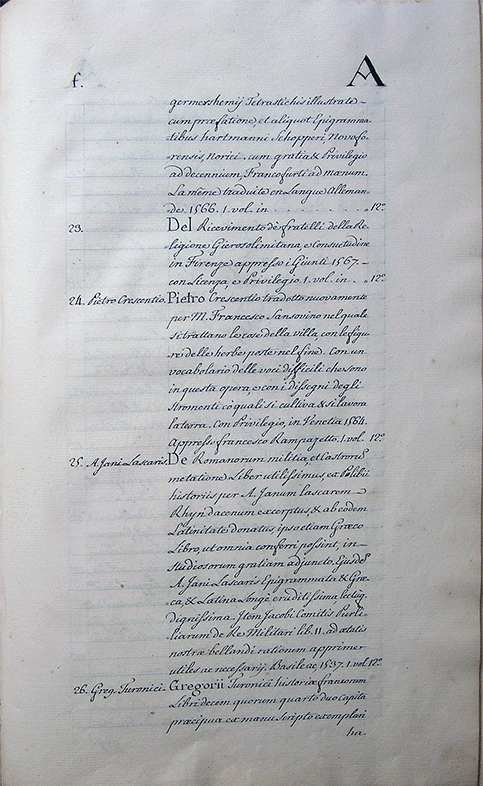 f. A
germershemij Tetrastichis illustrate
cum præfatione, et aliquot Epigramma
tibus hartmanni Schopperi, Novofo-
rensis, Norici. cum gratia & Privilegio
ad decennium, Francofurti ad manum.
La même traduite en Langue Alleman-
de. 1566. 1. vol. in . . . . . . . 12.º
23. Del Ricevimento de fratelli della Re-
ligione Gierosolimitana, e Consuetudine
in Firenze appresso i Giunti 1567.
con Licenza, e Privilegio 1. vol. in . . 12.º
24. Pietro Crescentio. Pietro Crescentio tradotto nuovamente
per M. Francesco Sansovino nel quale
si trattano le cose della villa, con le figu-
re delle herbe poste nel fine. Con un
vocabolario delle voci difficili che sono
in questa opera, e con i dissegni degli
stromenti co quali si cultiva & si lavora
la terra. Con Privilegio, in Venetia 1564.
Appresso francesco Rampazetto. 1. vol. 12.º
25. A. Jani Lascaris. De Romanorum militia, et Castroru
metatione Liber utilissimus, ex Polibii
historiis per A. Janum lascarem
Rhyndacenum excerptus, & ab eodem
Latinitate donatus, ipso etiam Græco
Libro, ut omnia conferri possint, in
studiosorum gratiam adjuncto. Ejusdẽ
A. Jani Lascaris Epigrammata & Græ-
ca, & Latina Longè eruditissima
dignissima. Item Jacobi Comitis Purli-
liarum de Re Militari lib. 11. ad ætatis
nostræ bellandi rationem apprimer
utiles ac necessarij. Basileae, 1537. 1. vol. 12.º
26. Greg. Turonici. Gregorii Turonici historiæ francorum
Libri decem quorum quarto duo capita
præcipua ex manuscripto exemplari
ha.